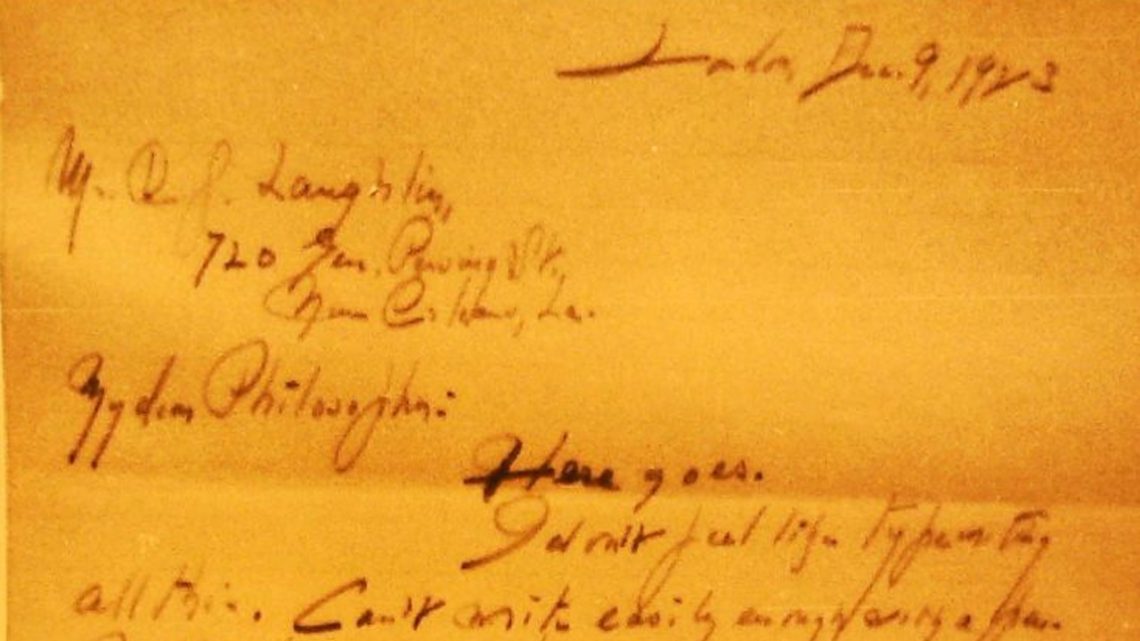 London, Dec. 9, 1923
Mr. R. J. Laughlin,
720 Gen. Pershing St.,
New Orleans, La.
My dear Philosopher:
Here goes.
I don't feel like typewriting
all this. Can't write easily enough with a pen.